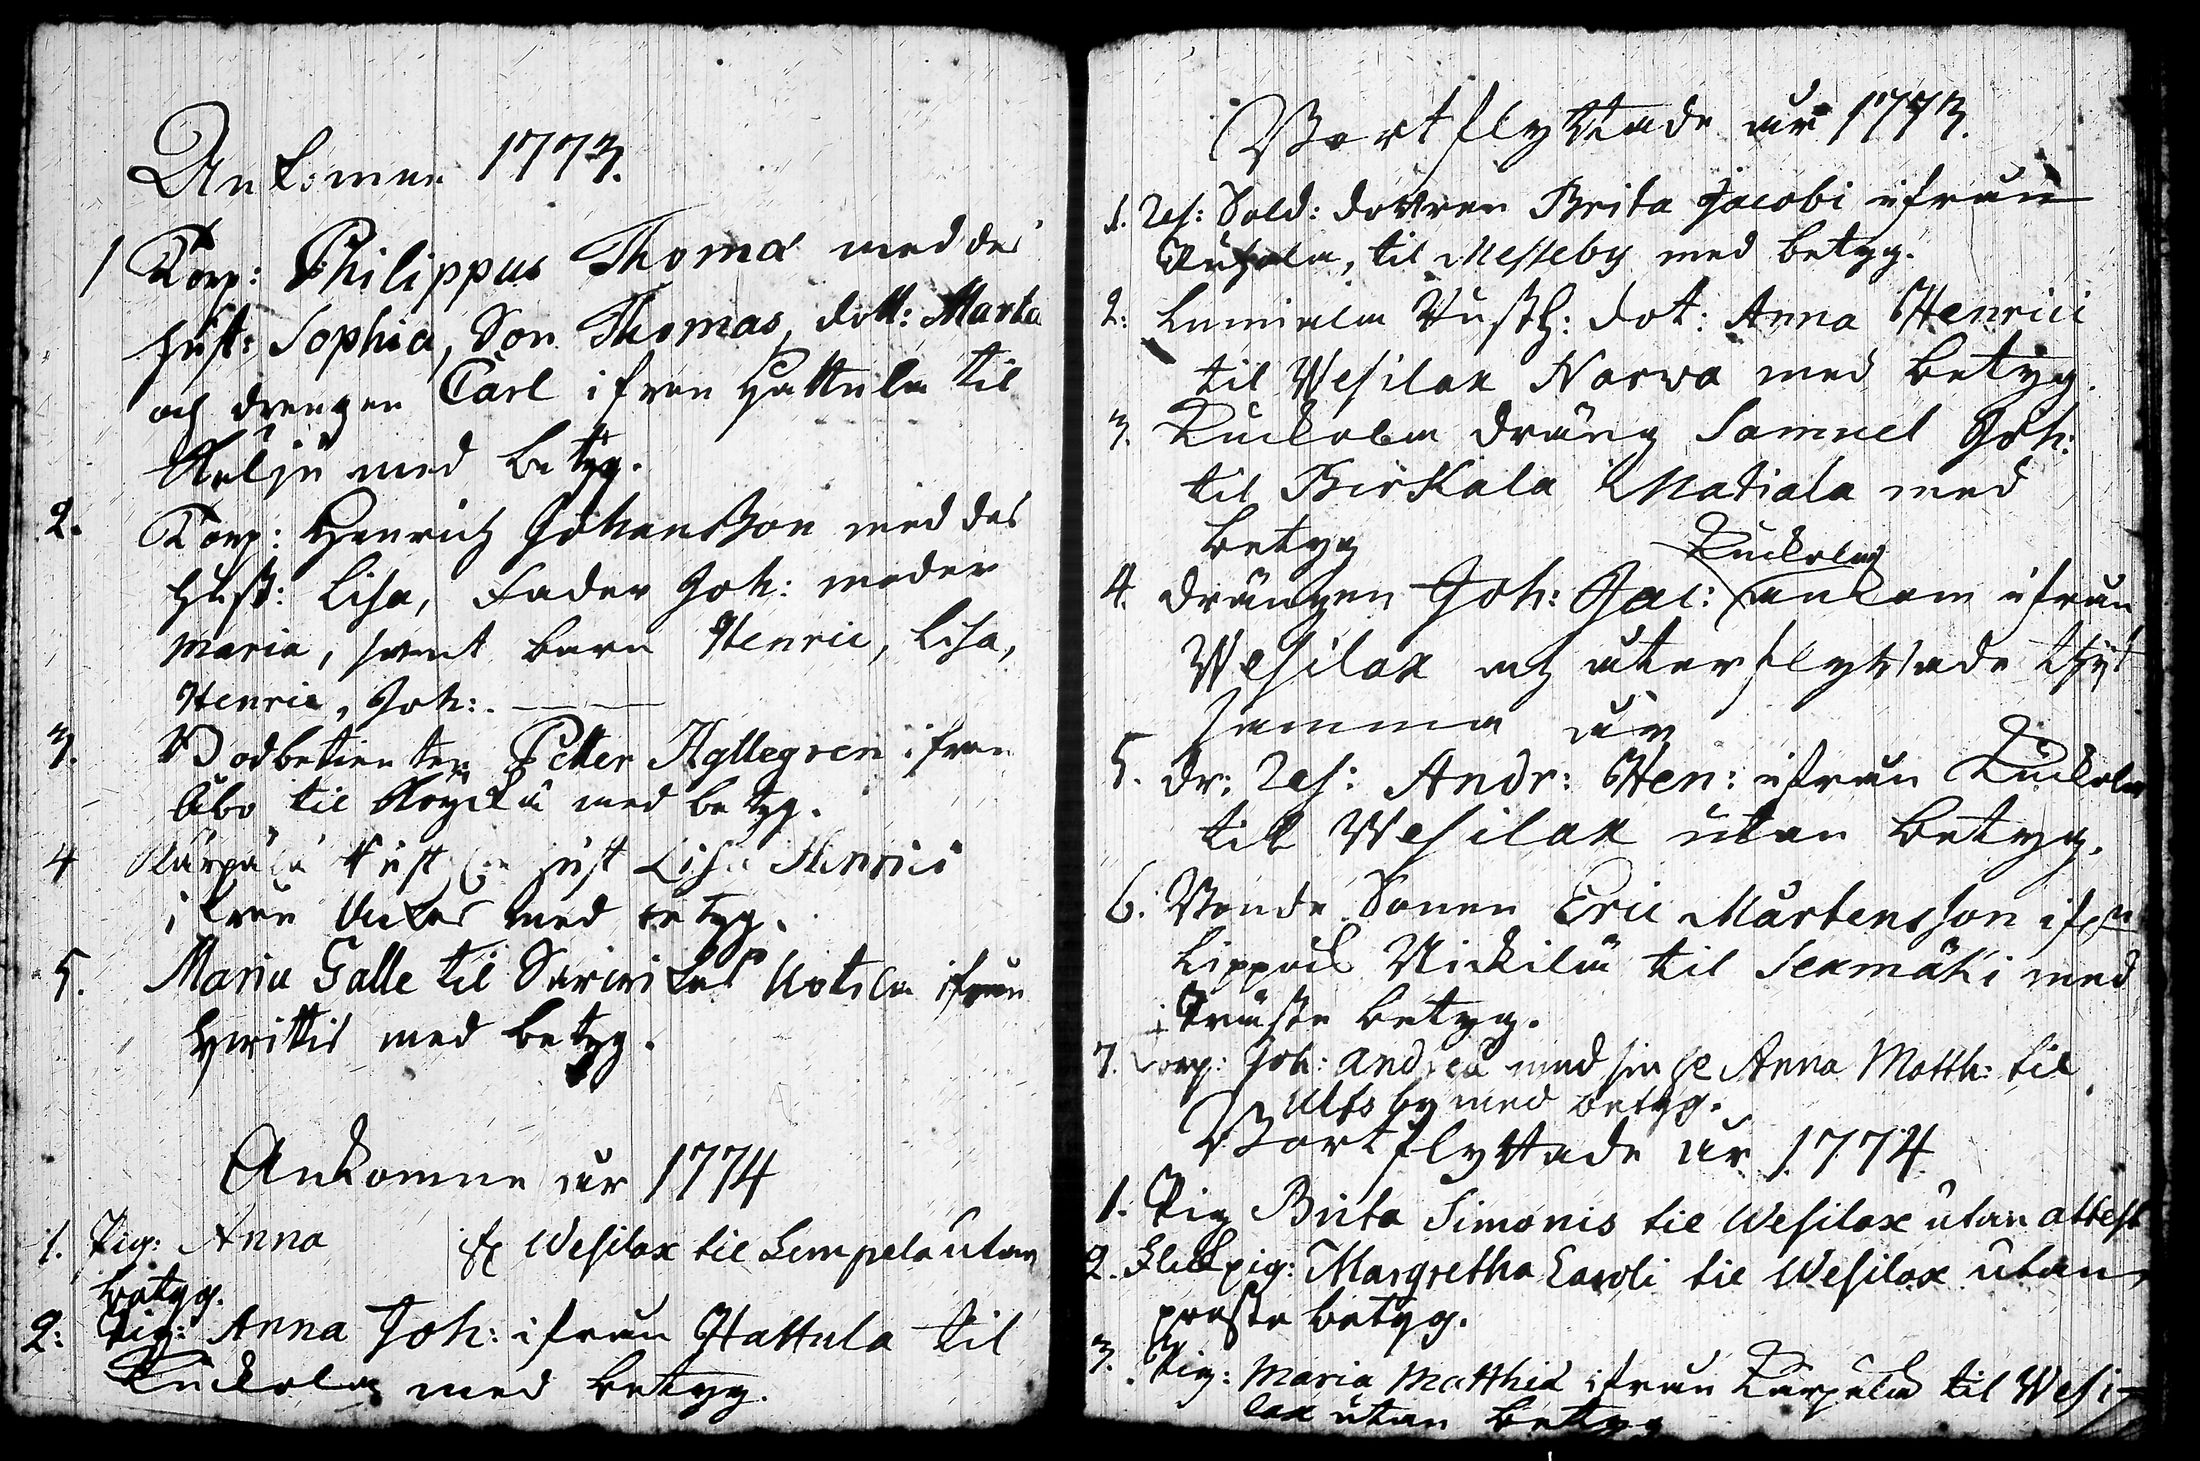 Ankomne 1773.
1 Torp: Philippus Thomæ med des
hust: Sophia, Son Thomas, dott: Marta
och drengen Carl ifron Hattula til
med betyg.
2. Torp: Henrich Johansson med des
Hust: Lisa, Fader Joh: moder
Maria, samt barn Henric, Lisa,
Henric, Joh:.
3. Bodbetienten Petter Hyllegren ifron
Åbo til med betyg.
4 Kärpälä hust Lisa Henrici
ifrån med betyg.
5. Maria Galle til ifrån
Hvittis med betyg.
Ankomne år 1774
1. Pig: Anna fr Wesilax til Lempelä utan
betyg.
2: Pig: Anna Joh: ifrån Hattula til
Kuckola med betyg.
Bortflyttade år 1773.
1. Ref: Sold: dottren Brita Jacobi ifrån
til Messeby med betyg.
2: Lumiala Rusth: dot: Anna Henrici
til Wesilax Narwa med betyg.
3. Kuckola dräng Samuel Joh:
til Birkala Matiala med
betyg
Kuckola
4. drängen Joh: Jac: ankom ifrån
Wesilax och återflyttade dijt
samma år
5. dr: Ref: Andr: Hen: ifrån Kuckola
til Wesilax utan betyg.
6. Bonde Sonen Eric Mårtensson ifrån
Lippois Nickilä til Sexmäki med
Präste betyg.
7. Torp: Joh: Andreæ med sin h: Anna Matth: til
Ulfsby med betyg.
Bortflyttade år 1774
1. Pig Brita Simonis til Wesilax utan attest
2. pig: Margretha Caroli til Wesilax utan
preste betyg.
3. Pig: Maria Matthiæ ifrån Kärpälä til Wesi-
lax utan betyg